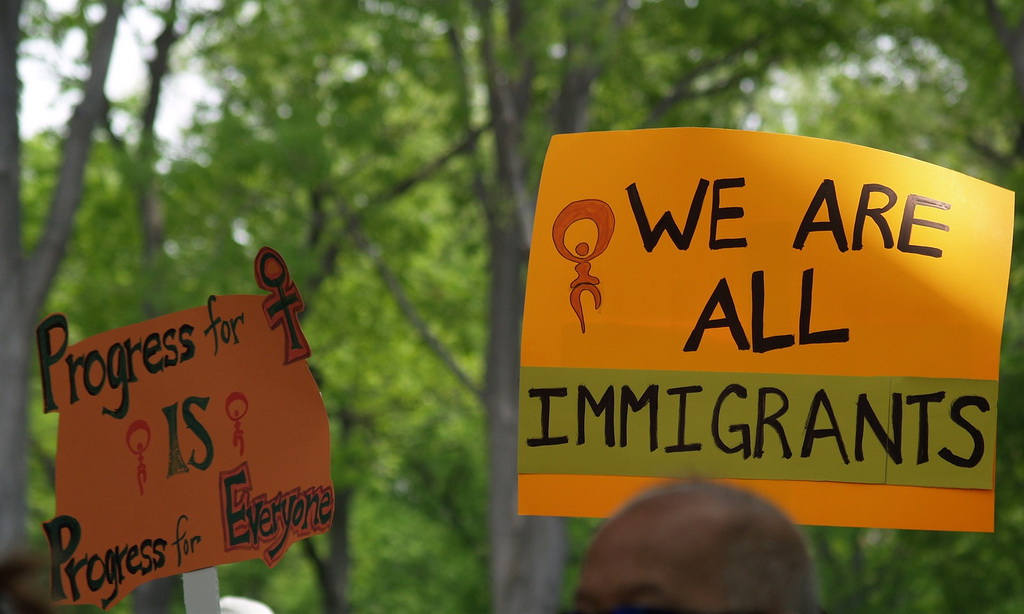 Progress for
IS
Progress for Everyone
WE ARE
ALL
IMMIGRANTS